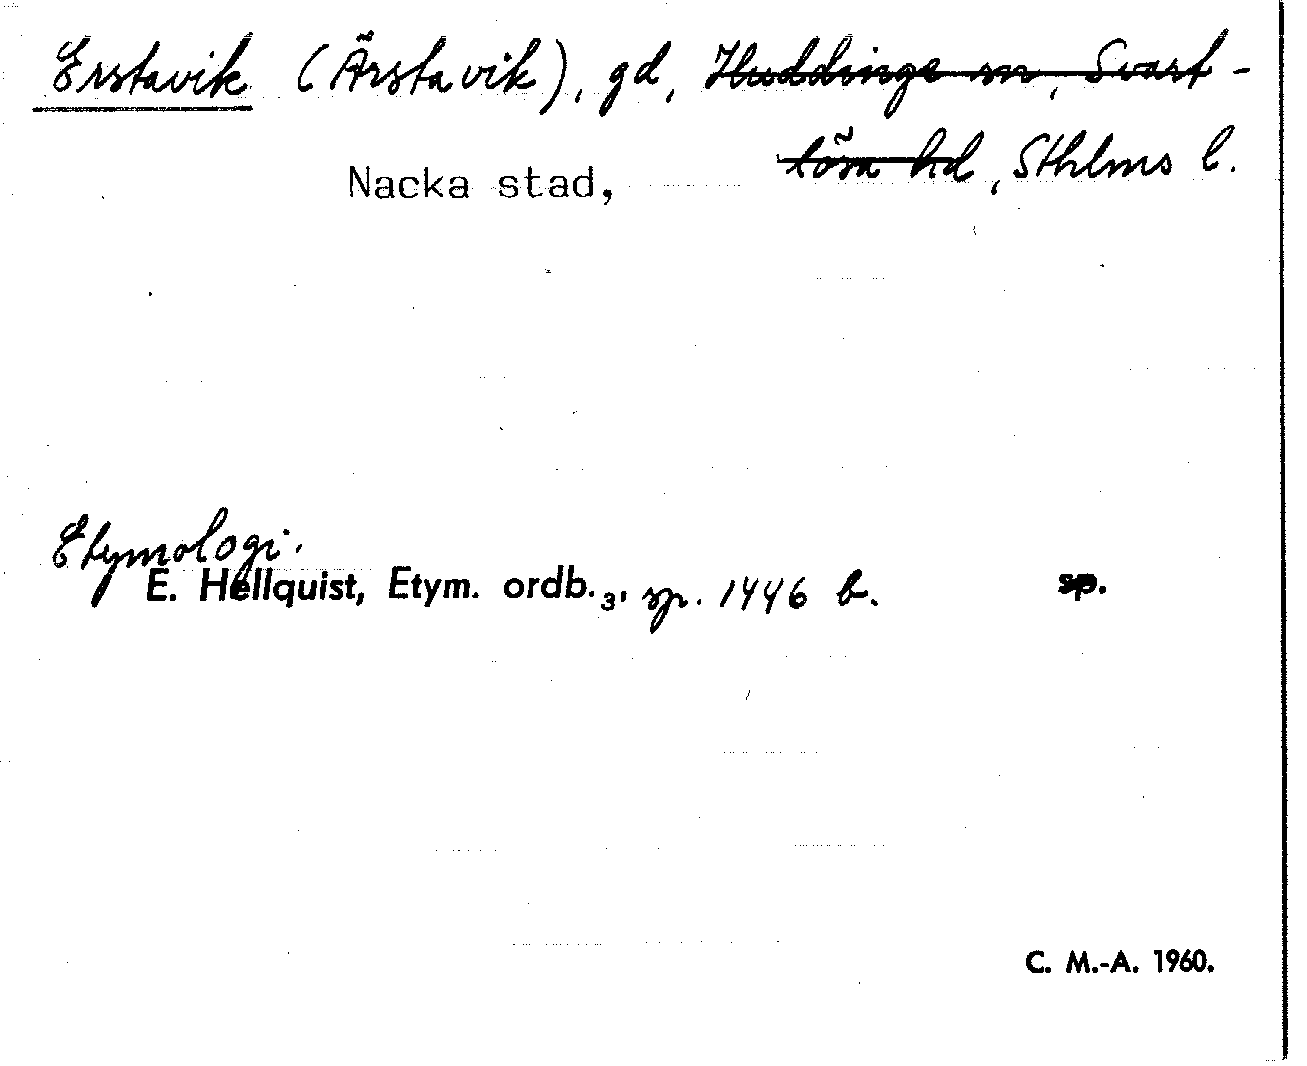 Erstavik (Ärstavik), gd, Huddinge sn, Svart-
Nacka stad, lösa hd, Sthlms l.
Etymologi.
E. Hellquist, Etym. ordb.3, sp. 1446 b. sp.
C. M.-A. 1960.